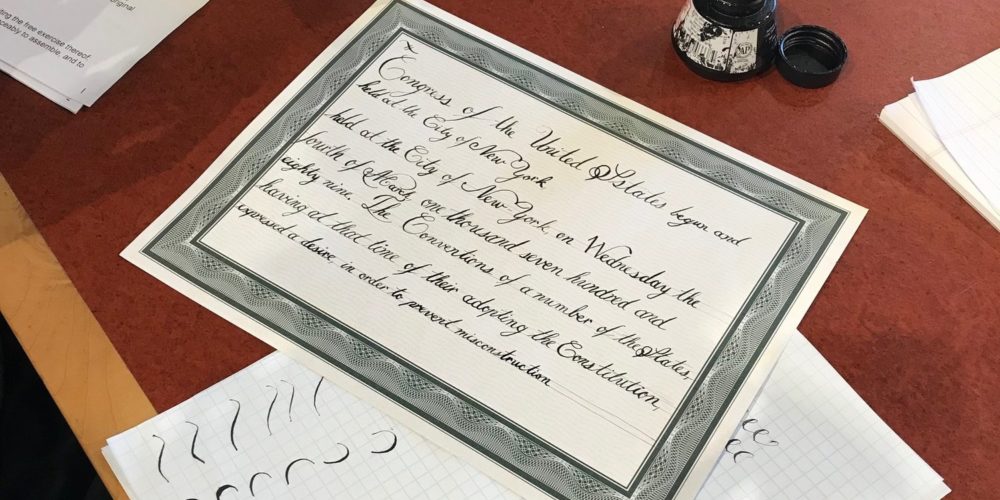 original
ting the free exercise thereof,
ceably to assemble, and to
Congress of the United States begun and
held at the City of New York
held at the City of New York, on Wednesday the
fourth of March, one thousand seven hundred and
eighty nine. The Conventions of a number of the States,
having at that time of their adopting the Constitution,
expressed a desire in order to prevent misconstruction